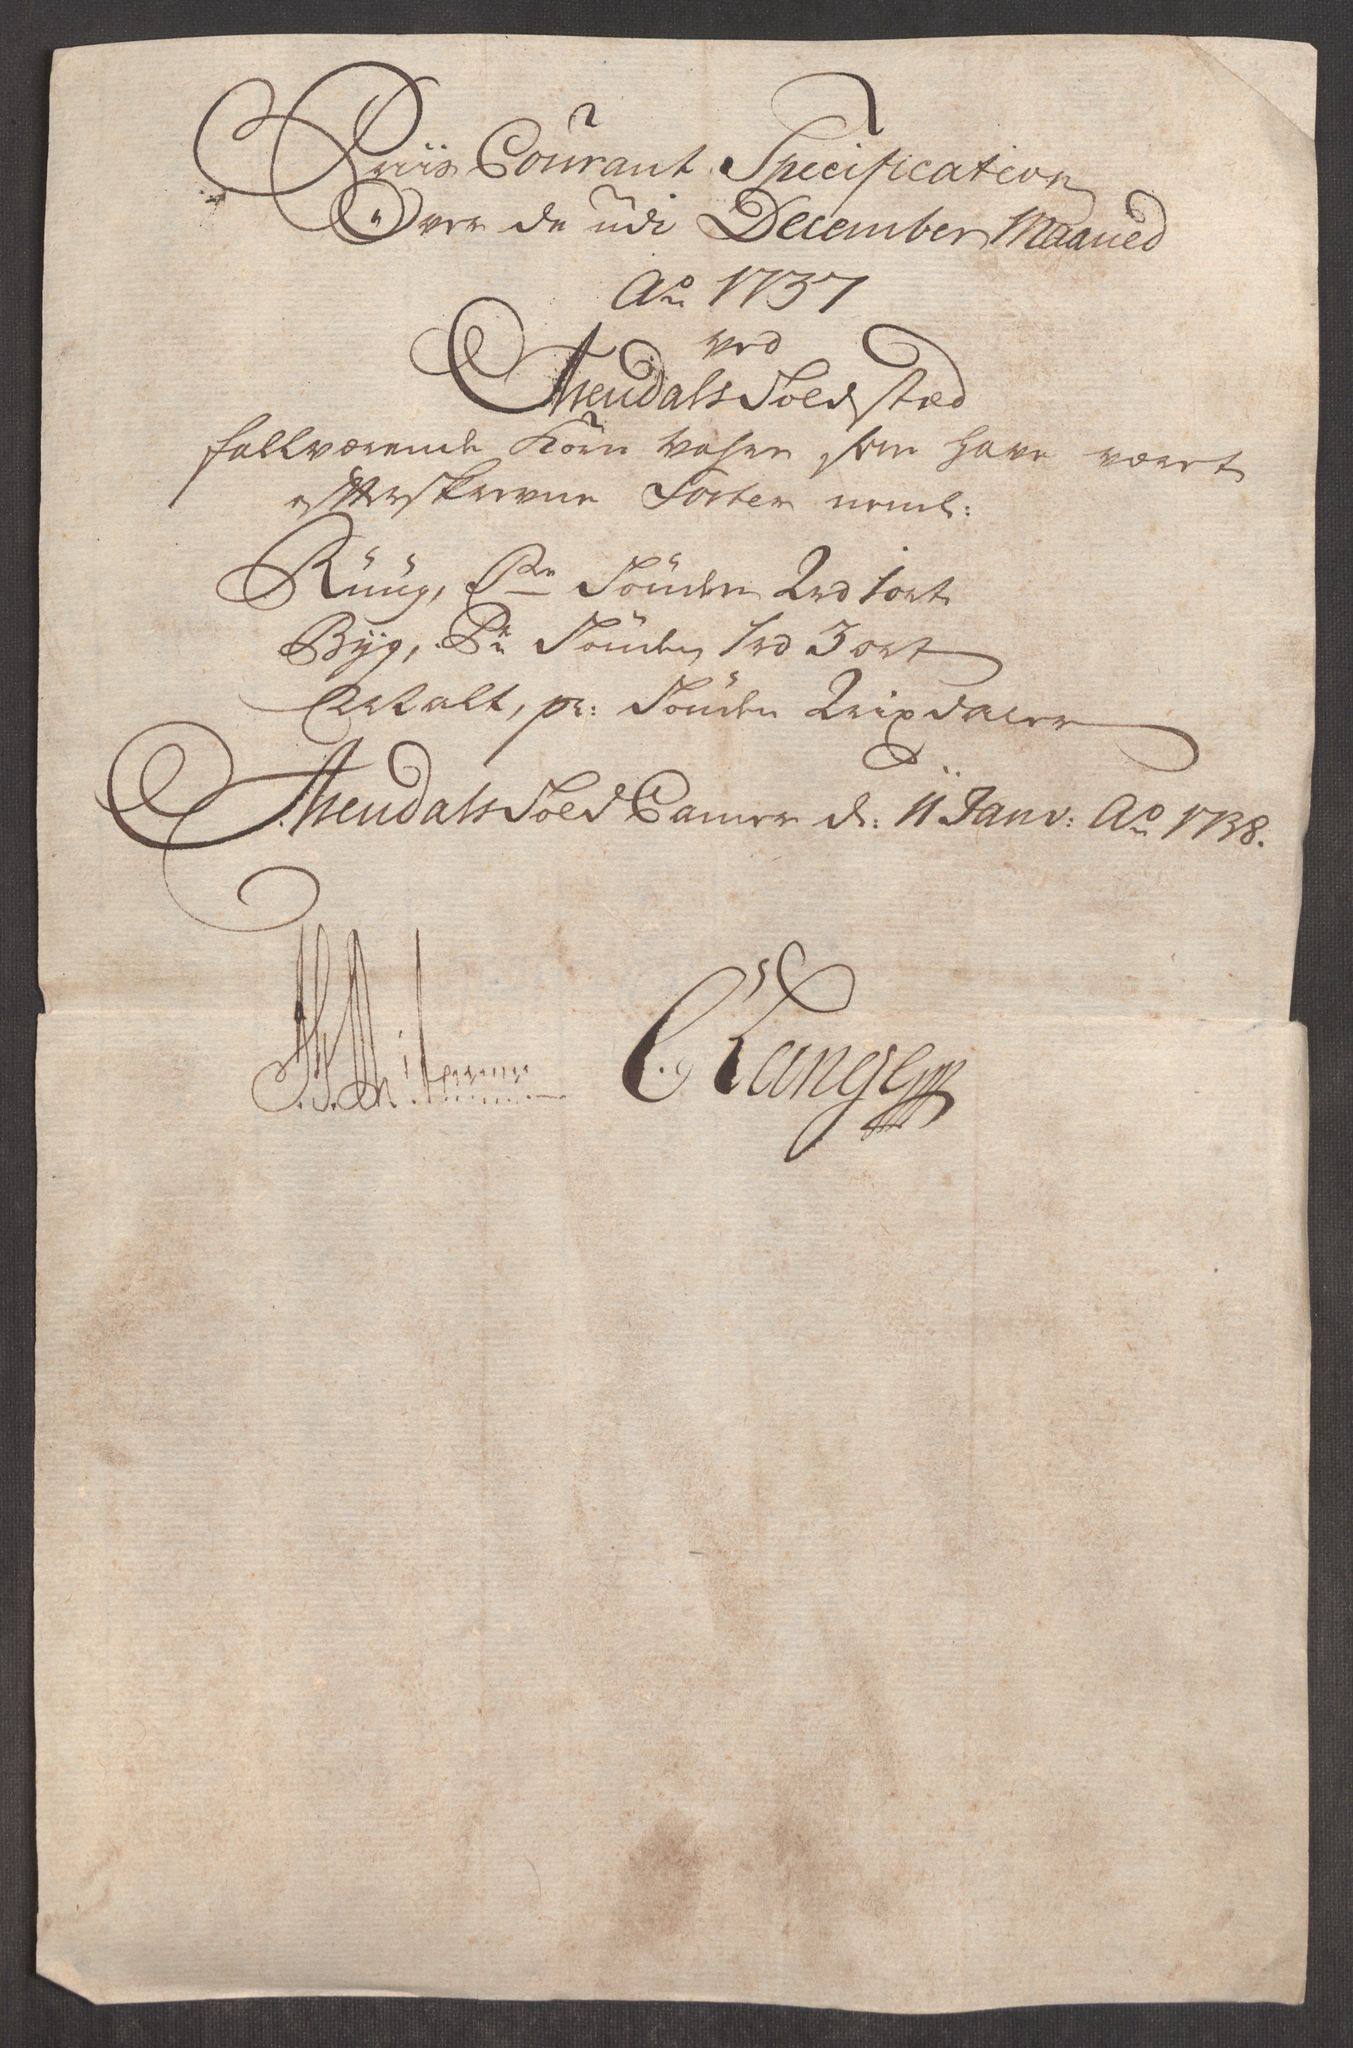 Priis Courant Specification
Over de udi December Maaned
Ao 1737
ved
Arendals Told sted
faldværende Korn Vahre som have været
efterskrevne Sorter neml:
Rüüg, Pr Tønden 2rd 1ort
Byg, Pr Tønden 1rd 3ort
Malt, pr: Tønden 2 rixdaler
Arendals Told Camer d: 11 Janv: Ao 1738.
C. Lange